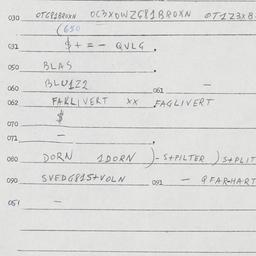 030 OTG81BROXN OC3XOWZG81BROXN OT1Z3X8
(650
031 $ + = - QVLG .
050 BLAS .
060 BLU1ZZ 061 -
062 FARLIVERT XX FAGLIVERT
070 $
071 - .
080 DORN 1DORN )-S+PILTER )S+PLIT
090 SVEDG815+VOLN 091 - QFAR-HART
051 -